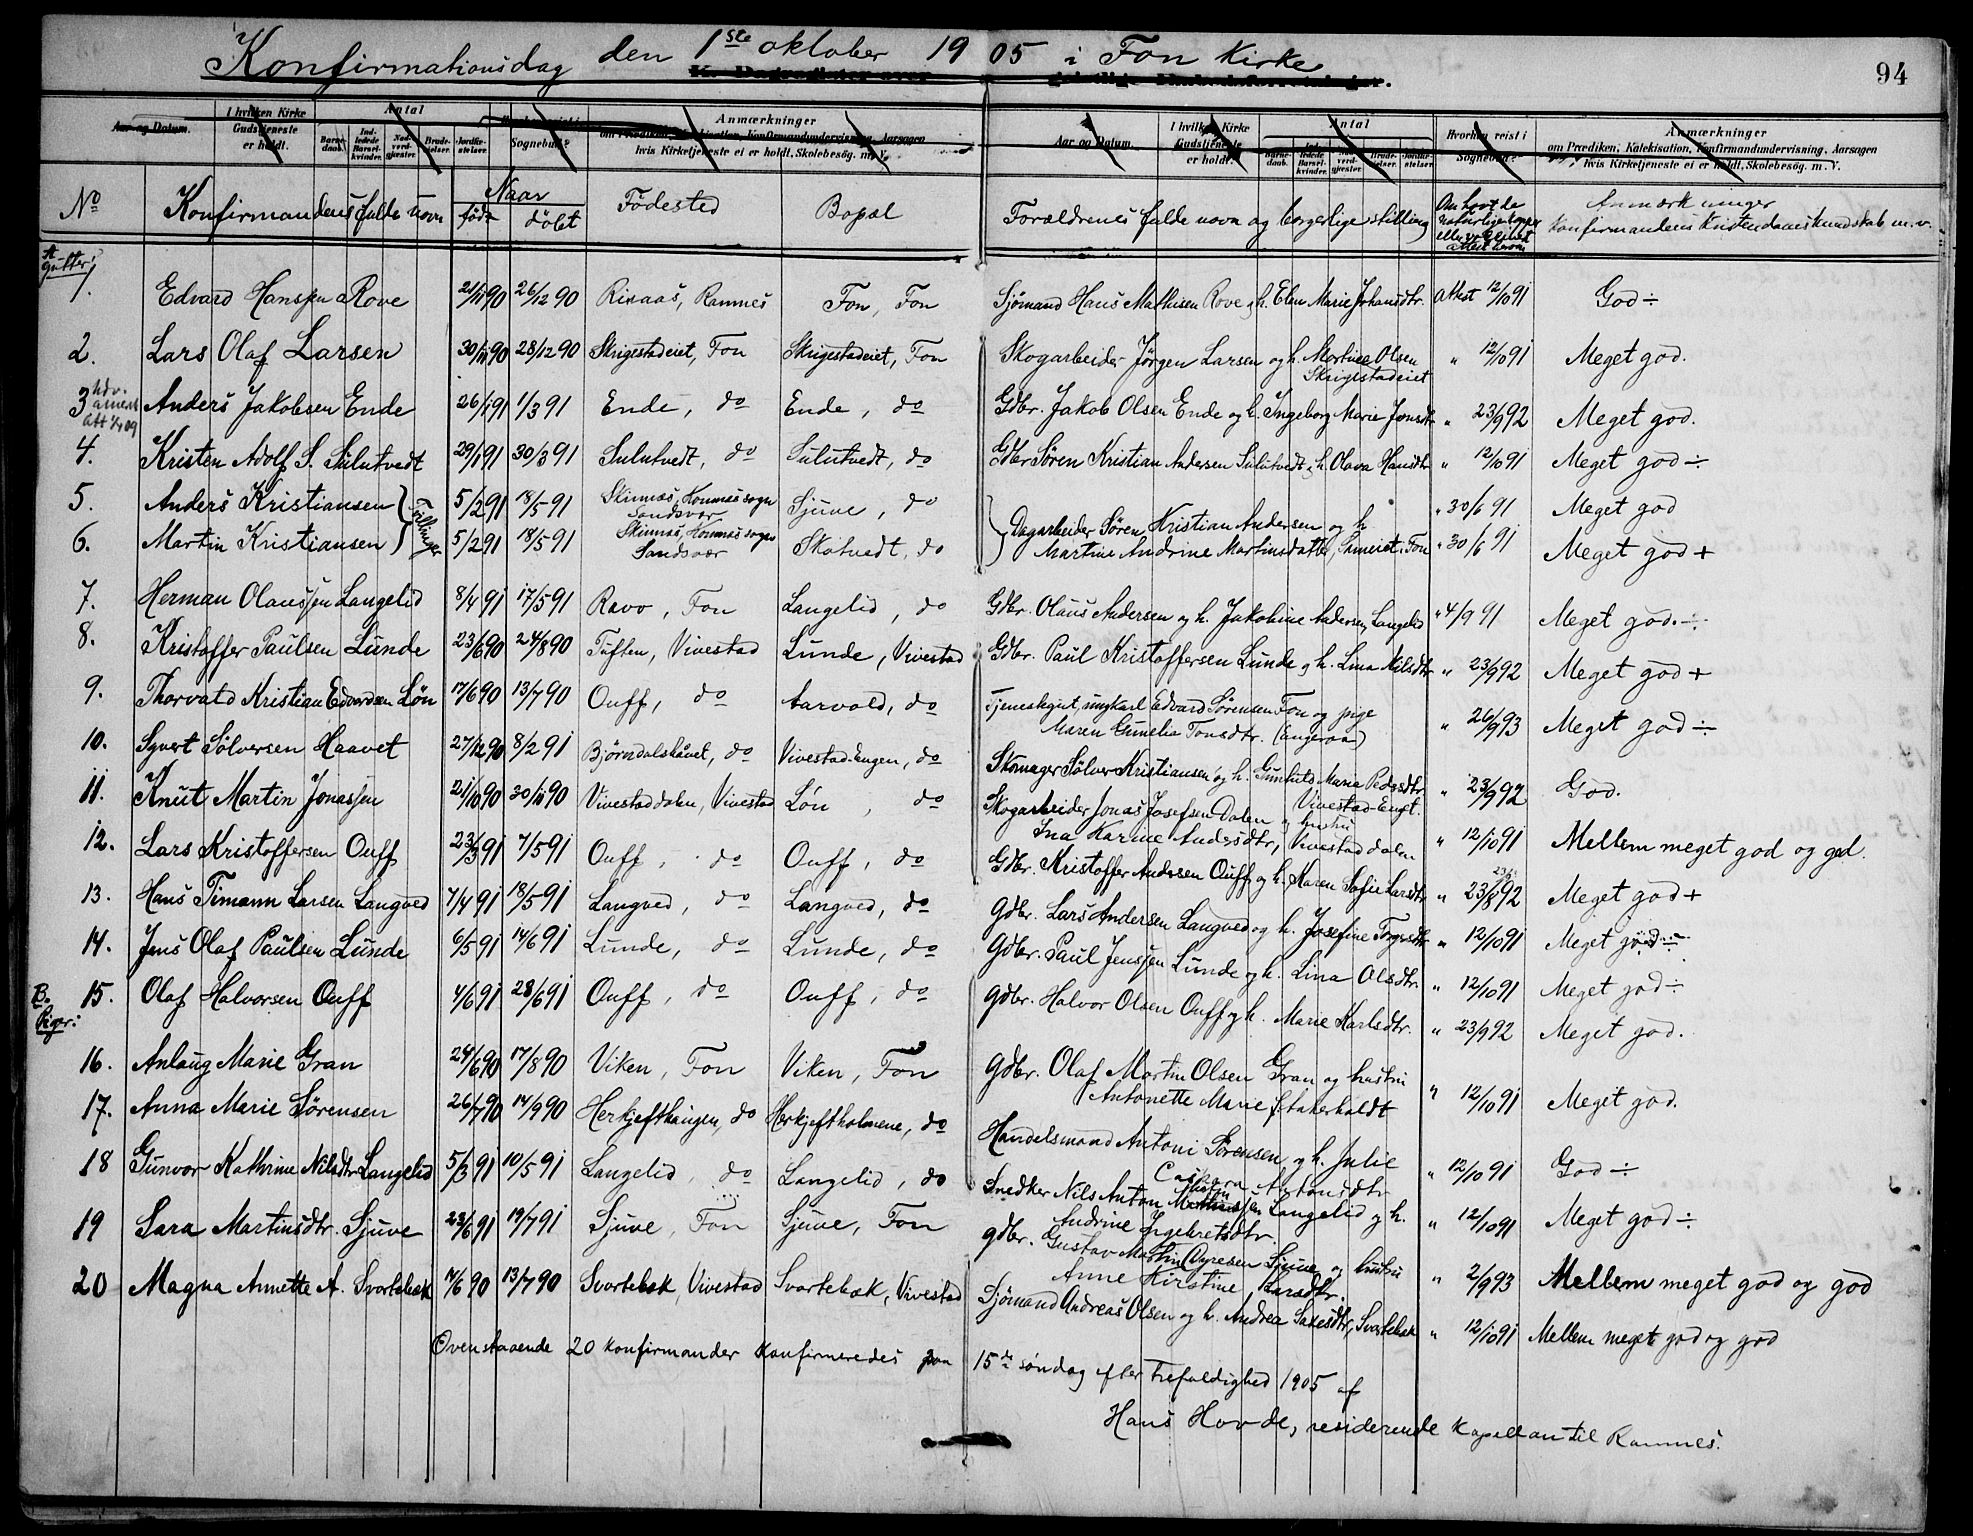 Konfirmationsdag den 1ste oktober 1905 i Fon Kirke
94
K. Dagregister over geistlige Embedsforretninger.
Aar og Datum. I hvilken Kirke Gudstjeneste er holdt. Antal Barnedaab. Indledede Barselkvinder. Nadverdgjester. Brudevielser. Jordfæstelser. Sognebud? Anmærkninger om Prædiken, Katekisation, Konfirmandundervisning, Aarsagen hvis Kirketjeneste ei er holdt, Skolebesøg. m. V.
Aar og Datum. I hvilken Kirke Gudstjeneste er holdt. Antal Barnedaab. Indledede Barselkvinder. Nadverdgjester. Brudevielser. Jordfæstelser. Hvorhen reist i Sognebud? Anmærkninger om Prædiken, Katekisation, Konfirmandundervisning, Aarsagen hvis Kirketjeneste ei er holdt, Skolebesøg. m. V.
No Konfirmandens fulde navn Naar født døbt Fødested Bopæl Forældrenes fulde navn og borgerlige stilling Om havt de naturlige kopper eller vaccineret attest herom Anmærkninger Konfirmandens Kristendomskundskab m.v.
A. Gutter:
1. Edvard Hanssen Rove 21/11 90 26/12 90 Rivaas, Ramnes Fon, Fon Sjömand Hans Mathisen Rove og h. Elen Marie Johansdtr. Attest 12/10 91 God ÷
2. Lars Olaf Larsen 30/11 90 28/12 90 Skrigestadeiet, Fon Skrigestadeiet, Fon Skogarbeider Jörgen Larsen og h. Martine Olsen Skrigestadeiet " 12/10 91 Meget god.
3 Anders Jakobsen Ende 26/1 91 1/3 91 Ende, do Ende, do Gdbr. Jakob Olsen Ende og h. Ingeborg Marie Jonsdtr " 23/9 92 Meget god.
4. Kristen Adolf S. Sulutvedt 29/1 91 30/3 91 Sulutvedt, do Sulutvedt, do Gdbr Søren Kristian Andersen Sulutvedt, h. Olava Hansdtr " 12/10 91 Meget god ÷
5. Anders Kristiansen } Tvillinger 5/2 91 18/5 91 Skinnes, Hounnes sogn Sandsvær Sjuve, do " 30/6 91 Meget god
6. Martin Kristiansen } 5/2 91 18/5 91 Skinnes, Hounnes sogn Sandsvær Skotvedt, do } Dagarbeider Søren Kristian Andersen og h. Martine Andrine Martinsdatter, Fon " 30/6 91 Meget god +
7. Herman Olaussen Langelid 8/4 91 17/5 91 Ravo, Fon Langelid, do Gdbr. Olaus Andersen og h. Jakobine Andersen, Langelid " 4/9 91 Meget god. ÷
8. Kristoffer Paulsen Lunde 23/6 90 24/8 90 Tuften, Vivestad Lunde, Vivestad Gdbr. Paul Kristoffersen Lunde og h. Lina Nilsdtr " 23/9 92 Meget god +
9. Thorvald Kristian Edvardsen Lön 17/6 90 13/7 90 Ouff, do Aarvold, do Tjenestegut, ungkarl Edvard Sörensen Fon og pige Maren Gunelia Tonsdtr. (angeraa) " 26/9 93 Meget god ÷
10. Syvert Sölversen Haavet 27/12 90 8/2 91 Björndalshávet, do Vivestad-Engen, do Skomager Sölver Kristiansen og h. Gunhild Marie Pedersdtr Vivestad-Enget. " 23/9 92 God.
11. Knut Martin Jonassen 21/10 90 30/11 90 Vivestaddalen, Vivestad Lön, do Skogarbeider Jonas Josefsen Dalen og hustru Ina Karine Andersdtr, Vivestaddalen " 12/10 91 Mellem meget god og god.
12. Lars Kristoffersen Ouff 23/3 91 7/5 91 Ouff, do Ouff, do Gdbr. Kristoffer Andersen Ouff og h. Karen Sofie Larsdtr " 23/8 92 Meget god +
13. Hans Timann Larsen Langved 7/4 91 18/5 91 Langved, do Langved, do Gdbr. Lars Andersen Langved og h. Josefine Torgersdtr " 12/10 91 Meget god ÷
14. Jens Olaf Paulsen Lunde 6/5 91 14/6 91 Lunde, do Lunde, do Gdbr. Paul Jenssen Lunde og h. Lina Olsdtr. " 12/10 91 Meget god ÷
15. Olaf Halvorsen Ouff 4/6 91 28/6 91 Ouff, do Ouff, do Gdbr. Halvor Olsen Ouff og h. Marie Karlsdtr. " 23/9 92 Meget god.
B. Piger:
16. Anlaug Marie Gran 24/6 90 17/8 90 Viken, Fon Viken, Fon Gdbr. Olaf Martin Olsen Gran og hustru Antonette Marie f. Stakerholdt " 12/10 91 Meget god.
17. Anna Marie Sörensen 26/7 90 14/9 90 Herkjefthaugen, do Herkjeftholmene, do Handelsmand Antoni Sörensen og h. Julie Caspara Antonsdtr " 12/10 91 God ÷
18 Gunvor Kathrine Nilsdtr Langelid 5/3 91 10/5 91 Langelid, do Langelid, do Snedker Nils Anton Mathiassen Langelid og h. Andrine Ingebretsdtr. " 12/10 91 Meget god ÷
19 Sara Martinsdtr. Sjuve 23/6 91 19/7 91 Sjuve, Fon Sjuve, Fon Gdbr. Gustav Martin Oyresen Sjuve og hustru Anne Kirstine Larsdtr. " 2/9 93 Mellem meget god og god
20 Magna Annette A. Svartebæk 14/6 90 13/7 90 Svartebæk, Vivestad Svartebæk, Vivestad Sjömand Andreas Olsen og h. Andrea Saxesdtr, Svartebæk " 12/10 91 Mellem meget god og god
Ovenstaaende 20 konfirmander konfirmeredes paa 15de söndag efter trefoldighed 1905 af
Hans Hovde, residerende kapellan til Ramnes.